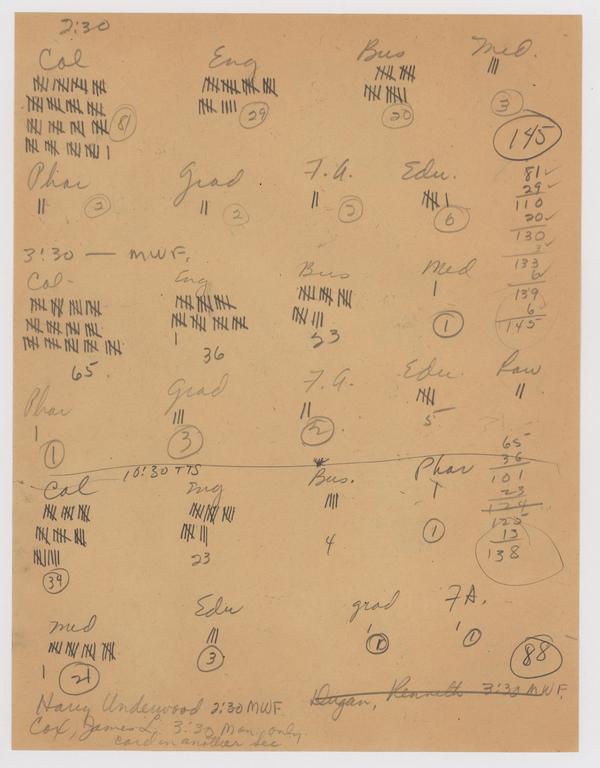 2:30
Col Eng Bus Med.
81 29 20 3
145
Phar Grad F.A. Edu.
2 2 2 6
81
29
110
20
130
3
133
6
139
6
145
3:30 — MWF.
Col- Eng Bus Med
65 36 23 1
Phar Grad F.A. Edu. Law
1 3 2 5
65
36
101
23
124
125
13
138
10:30 TTS
Col Eng Bus. Phar
39 23 4 1
Med Edu grad FA.
21 3 1 1
88
Harry Underwood 2:30 MWF
Dugan, Kenneth 3:30 MWF.
Cox, James L. 3:30 Mon. only.
card in another sec